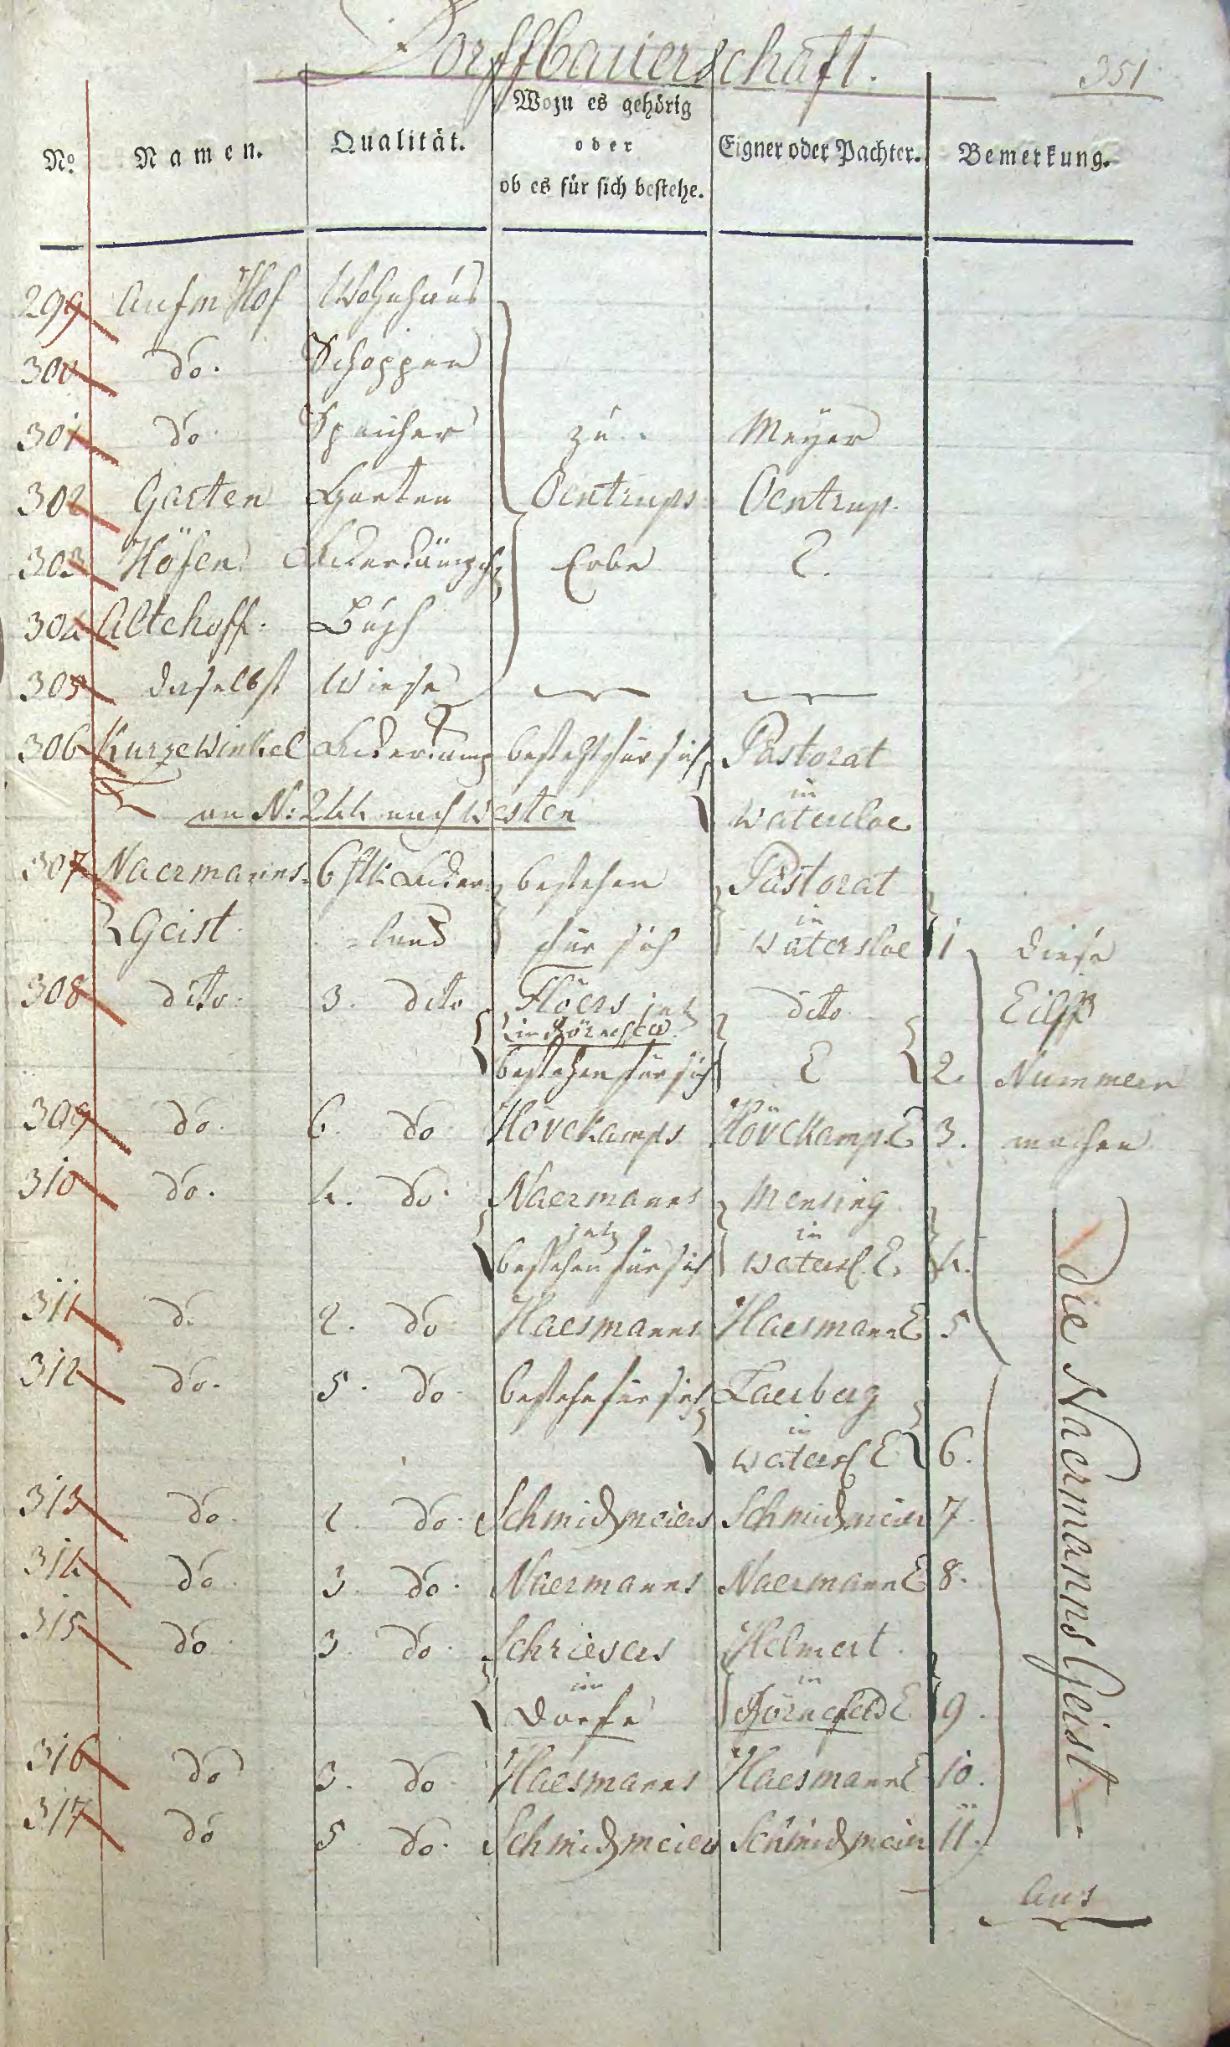 Dorffbauerschaft. 351
No. Namen. Qualität. Wozu es gehörig oder ob es für sich bestehe. Eigner oder Pachter. Bemerkung.
299 Aufm Hof Wohnhaus
300 do. Schoppen
301 do Speicher zu Meyer
302 Garten Garten Oentrups Oentrup.
303 Höfen Erbe E.
304 Altehoff. Busch
305 daselbst Wiese
306 Kurze Winkel Ackerkamp besteht für sich Pastorat
in
an N: 244 nach Westen Watersloe
307 Naermanns 6 stk Acker bestehen Pastorat
in
Geist =land für sich Watersloe 1 diese
308 dito 3. dito Floers jetz dito Eilff
bestehen für sich E 2. Nummern
309 do. 6. do Hövekamps Hövekamp E 3. machen
310 do. 4. do. Naermanns Mensing
jetz in
bestehen für sich Watersl. E. 4.
311 d. 2. do Haesmanns Haesmann E 5
312 do. 5. do bestehe für sich Laerberg
in
Watersl E 6.
die Naermanns Geist
313 do. 2. do. Schmidtmeiers Schmidtmeier 7.
314 do 3. do. Naermanns Naermann E 8.
315 do 3. do. Schrievers Helmert.
im in
Dorfe Hörnefeld E 9.
316 do 3. do Haesmanns Haesmann E 10.
317 do 5. do. Schmidtmeier Schmidtmeier 11.
aus